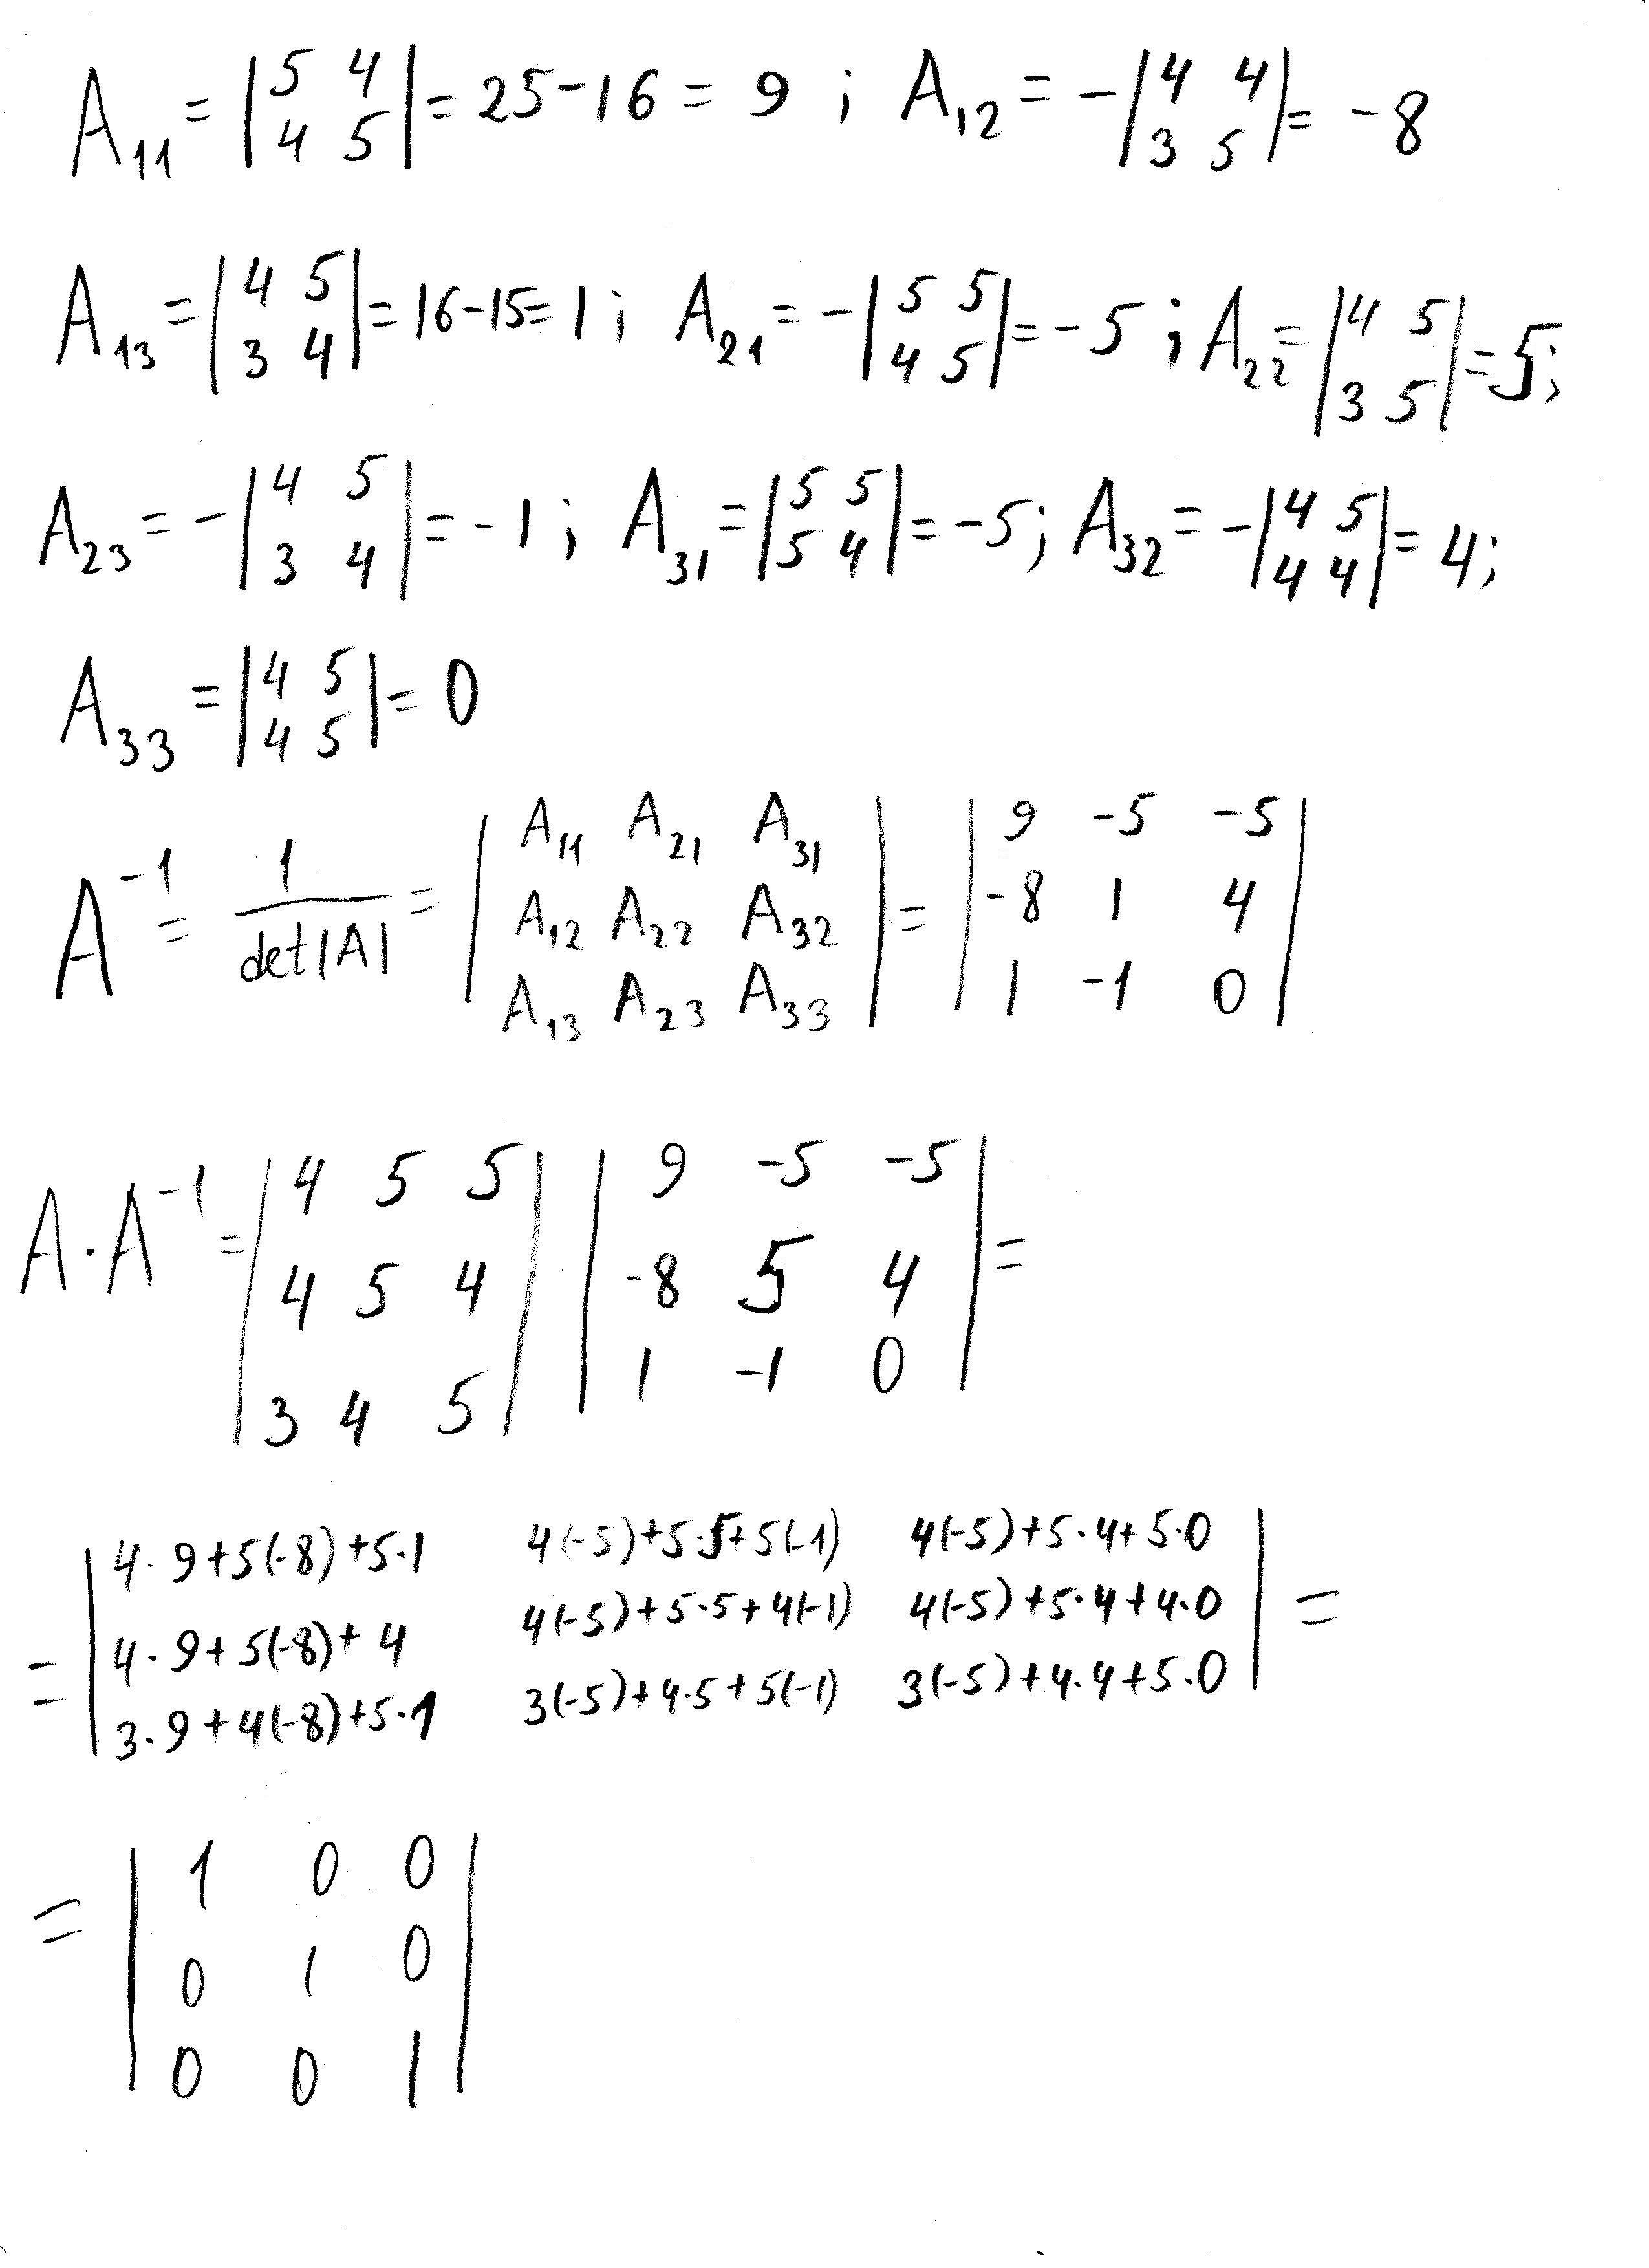 A₁₁ = |5 4; 4 5| = 25-16 = 9 ; A₁₂ = -|4 4; 3 5| = -8
A₁₃ = |4 5; 3 4| = 16-15=1; A₂₁ = -|5 5; 4 5| = -5; A₂₂ = |4 5; 3 5| = 5;
A₂₃ = -|4 5; 3 4| = -1; A₃₁ = |5 5; 5 4| = -5; A₃₂ = -|4 5; 4 4| = 4;
A₃₃ = |4 5; 4 5| = 0
A⁻¹ = 1/det|A| = |A₁₁ A₂₁ A₃₁; A₁₂ A₂₂ A₃₂; A₁₃ A₂₃ A₃₃| = |9 -5 -5; -8 1 4; 1 -1 0|
A·A⁻¹ = |4 5 5; 4 5 4; 3 4 5| |9 -5 -5; -8 5 4; 1 -1 0| =
= |4·9+5(-8)+5·1 4(-5)+5·5+5(-1) 4(-5)+5·4+5·0
4·9+5(-8)+4 4(-5)+5·5+4(-1) 4(-5)+5·4+4·0
3·9+4(-8)+5·1 3(-5)+4·5+5(-1) 3(-5)+4·4+5·0| =
= |1 0 0
0 1 0
0 0 1|